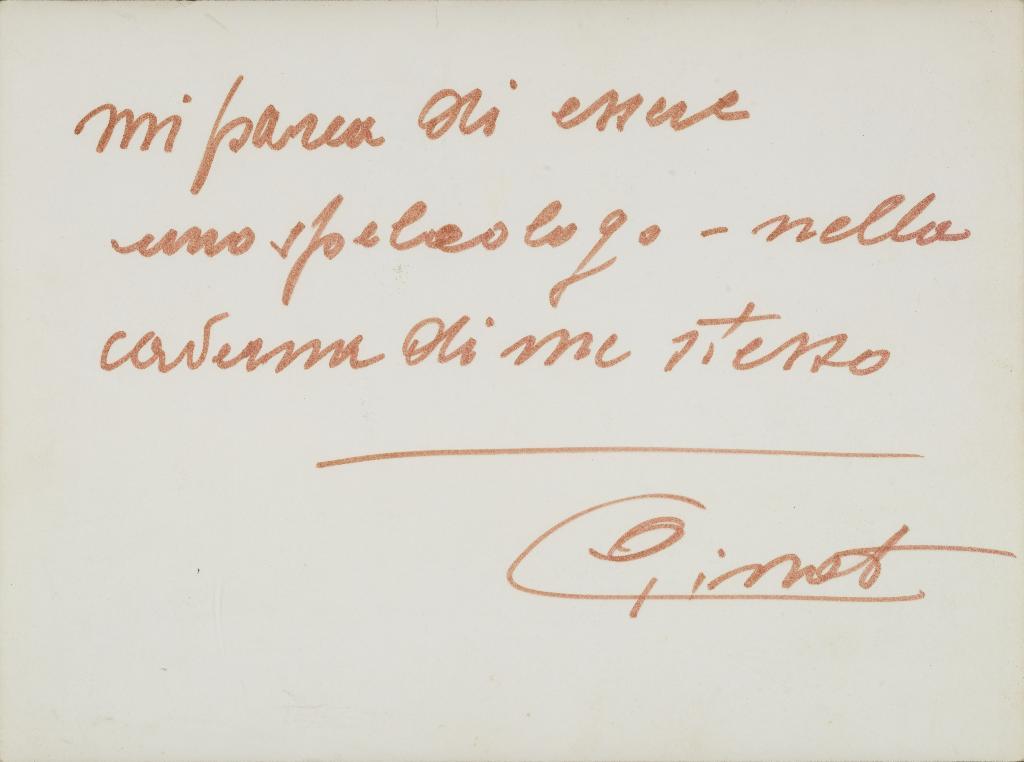 mi parea di essere
uno speleologo - nella
caverna di me stesso